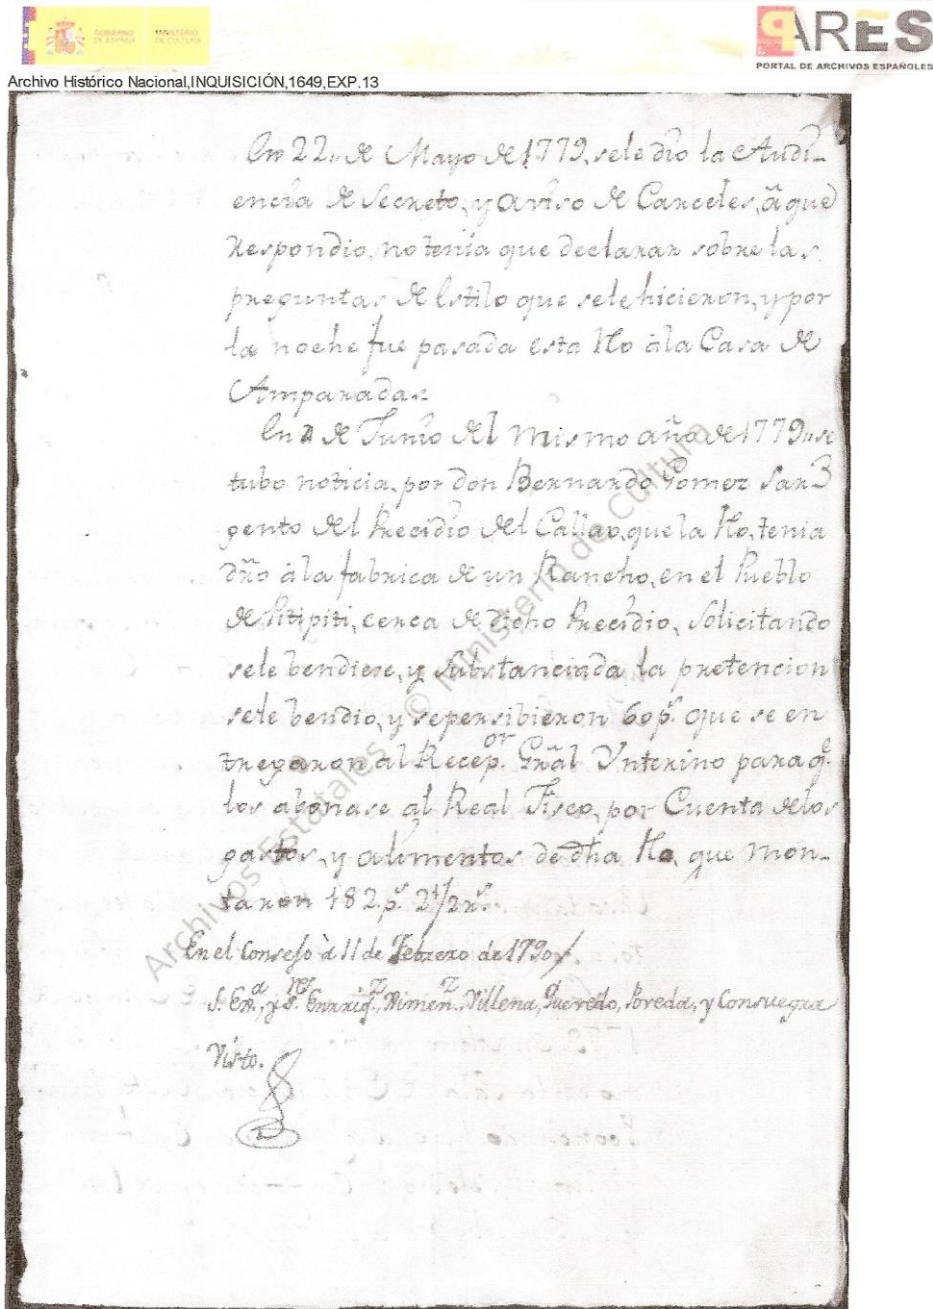 GOBIERNO DE ESPAÑA MINISTERIO DE CULTURA
PARES
PORTAL DE ARCHIVOS ESPAÑOLES
Archivo Histórico Nacional,INQUISICIÓN,1649,EXP.13
En 22,, de Mayo de 1779, sele dio la Audi-
encia de Secreto, y aviso de Carceles, â que
respondio, no tenia que declarar sobre las
preguntas de Estilo que sele hicieron, y por
la noche fue pasada esta Ro â la Casa de
Amparadas
En 2 de Junio del mismo año de 1779,, se
tubo noticia, por don Bernardo Gomez Sar-
gento del Precidio del Callao, que la Ro, tenia
dro â la fabrica de un Rancho, en el Pueblo
de Pitipiti, cerca de dicho Precidio, Solicitando
sele bendiese, y substanciada la pretencion
sele bendio, y se persibieron 60 ps. que se en
tregaron al Recepor. Gral Ynterino para qe.
los abonase al Real Fisco, por Cuenta delos
gastos, y alimentos de dha Ro, que mon-
taron 182 ps. 2 1/2 rs.
En el Consejo à 11 de Febrero de 1790
S. Exa., y SS. Enriqz., Ximenz., Villena, Quevedo, Poreda, y Consuegra
Visto.
Archivos Estatales © Ministerio de Cultura